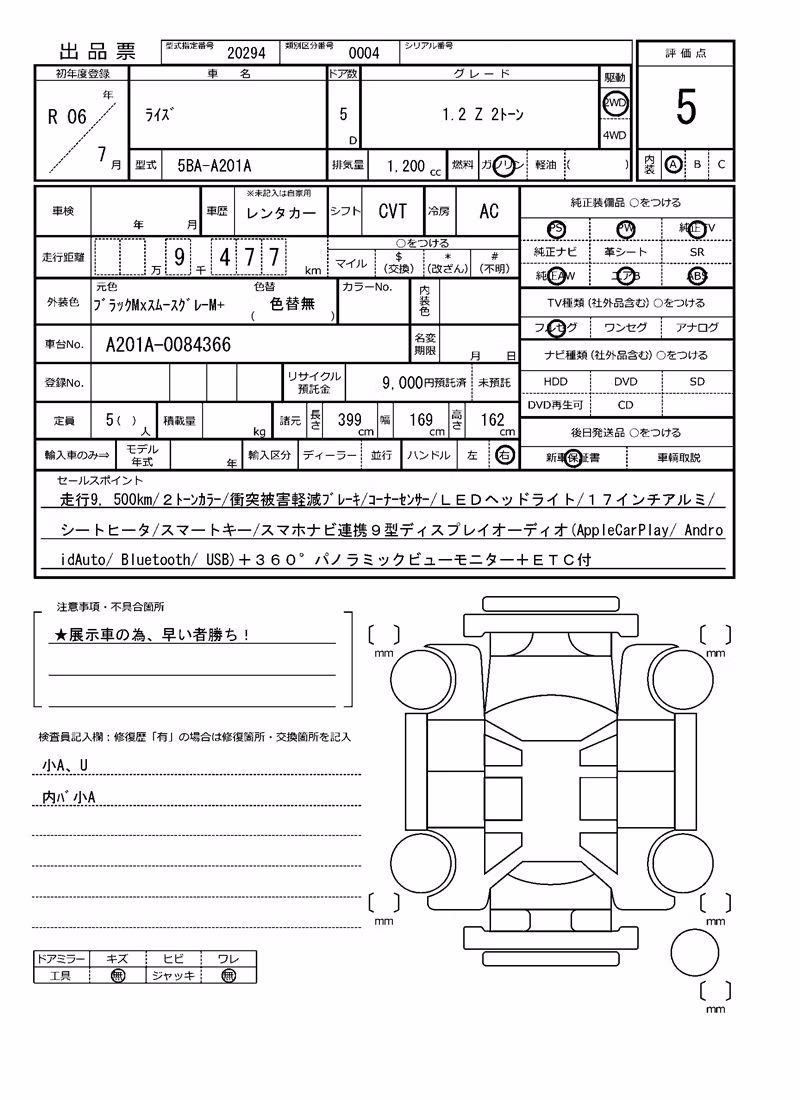 出品票 型式指定番号 20294 類別区分番号 0004 シリアル番号
評価点
初年度登録 車名 ドア数 グレード 駆動
R 06 年 7 月 ﾗｲｽﾞ 5 D 1.2 Z 2ﾄｰﾝ 2WD 4WD
5
型式 5BA-A201A 排気量 1,200 cc 燃料 ガソリン 軽油 ( )
内装 A B C
車検 年 月 車歴 ※未記入は自家用 レンタカー シフト CVT 冷房 AC
純正装備品 ○をつける
PS PW 純正TV
走行距離 万 9 千 4 7 7 km ○をつける
マイル $(交換) *(改ざん) #(不明)
純正ナビ 革シート SR
純正AW エアB ABS
外装色 元色 ﾌﾞﾗｯｸMxｽﾑｰｽｸﾞﾚｰM+ 色替 ( 色替無 ) カラーNo. 内装色
TV種類(社外品含む) ○をつける
フルセグ ワンセグ アナログ
車台No. A201A-0084366 名変期限 月 日
ナビ種類(社外品含む) ○をつける
登録No. リサイクル預託金 9,000円預託済 未預託
HDD DVD SD
DVD再生可 CD
定員 5( ) 人 積載量 kg 諸元 長さ 399 cm 幅 169 cm 高さ 162 cm
後日発送品 ○をつける
輸入車のみ⇒ モデル年式 年 輸入区分 ディーラー 並行 ハンドル 左 右
新車保証書 車輌取説
セールスポイント
走行9, 500km/２ﾄｰﾝｶﾗｰ/衝突被害軽減ﾌﾞﾚｰｷ/ｺｰﾅｰｾﾝｻｰ/ＬＥＤヘッドライト/１７インチアルミ/
シートヒータ/スマートキー/スマホナビ連携９型ディスプレイオーディオ(AppleCarPlay/ Andro
idAuto/ Bluetooth/ USB)＋３６０°パノラミックビューモニター＋ＥＴＣ付
注意事項・不具合箇所
★展示車の為、早い者勝ち！
mm mm
検査員記入欄：修復歴「有」の場合は修復箇所・交換箇所を記入
小A、U
内ﾊﾞ小A
mm mm
ドアミラー キズ ヒビ ワレ
工具 無 ジャッキ 無
mm